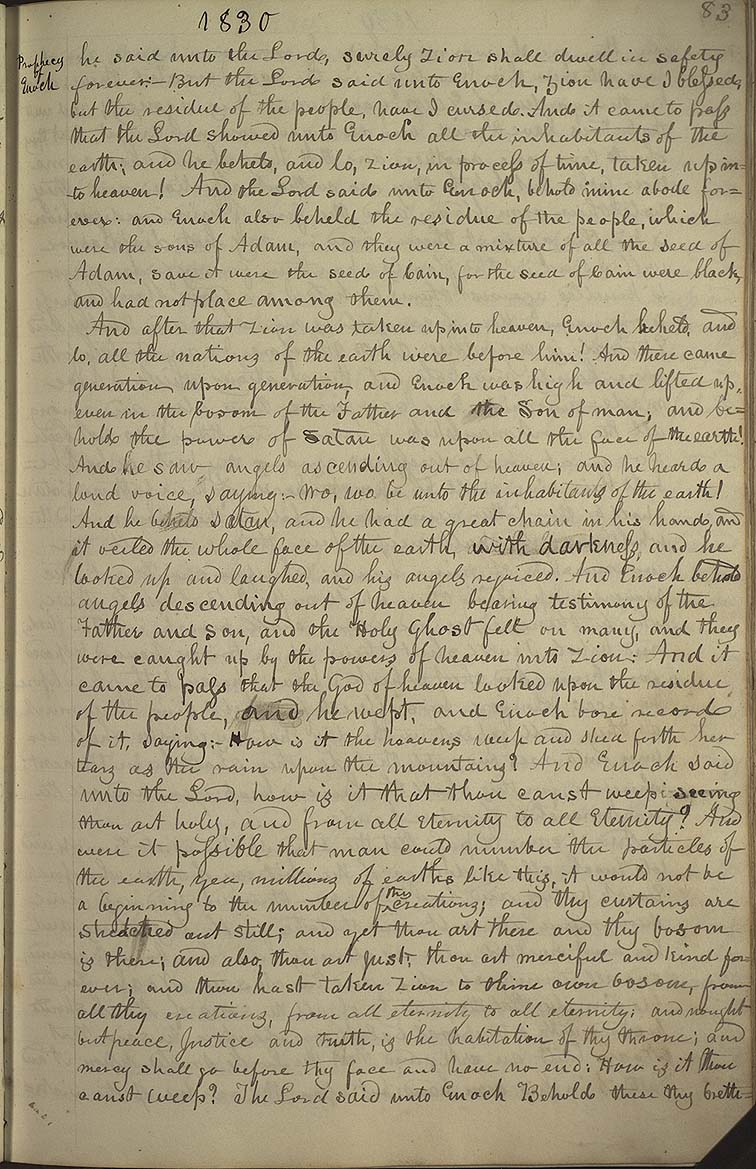 1830
83
Prophecy
of
Enoch
he said unto the Lord, surely Zion shall dwell in safety
forever:- But the Lord said unto Enoch, Zion have I blessed,
but the residue of the people, have I cursed. And it came to pass
that the Lord showed unto Enoch all the inhabitants of the
earth; and he beheld, and lo, Zion, in process of time, taken up in=
to heaven! And the Lord said unto Enoch, behold mine abode for=
ever: and Enoch also beheld the residue of the people, which
were the sons of Adam, and they were a mixture of all the seed of
Adam, save it were the seed of Cain, for the seed of Cain were black,
and had not place among them.
And after that Zion was taken up into heaven, Enoch beheld, and
lo, all the nations of the earth were before him! And there came
generation upon generation, and Enoch was high and lifted up,
even in the bosom of the Father and the Son of man; and be=
hold the power of Satan was upon all the face of the earth!
And he saw angels ascending out of heaven; and he heard a
loud voice, saying:- Wo, wo be unto the inhabitants of the earth!
And he beheld Satan, and he had a great chain in his hand, and
it veiled the whole face of the earth, with darkness, and he
looked up and laughed, and his angels rejoiced. And Enoch behold
angels descending out of heaven bearing testimony of the
Father and Son, and the Holy Ghost fell on many, and they
were caught up by the powers of heaven into Zion: And it
came to pass that the God of heaven looked upon the residue
of the people, and he wept, and Enoch bore record
of it, saying:- How is it the heavens weep and shed forth her
tears as the rain upon the mountains? And Enoch said
unto the Lord, how is it that thou canst weep: seeing
thou art holy, and from all Eternity to all Eternity? And
were it possible that man could number the particles of
the earth, yea, millions of earths like this, it would not be
a beginning to the number of thy creations; and thy curtains are
stretched out still; and yet thou art there and thy bosom
is there; and also, thou art just; thou art merciful and kind for=
ever; and thou hast taken Zion to thine own bosom, from
all thy creations, from all eternity to all eternity; and nought
but peace, Justice and truth, is the habitation of thy throne; and
mercy shall go before thy face and have no end: How is it thou
canst weep? The Lord said unto Enoch Behold these thy breth=